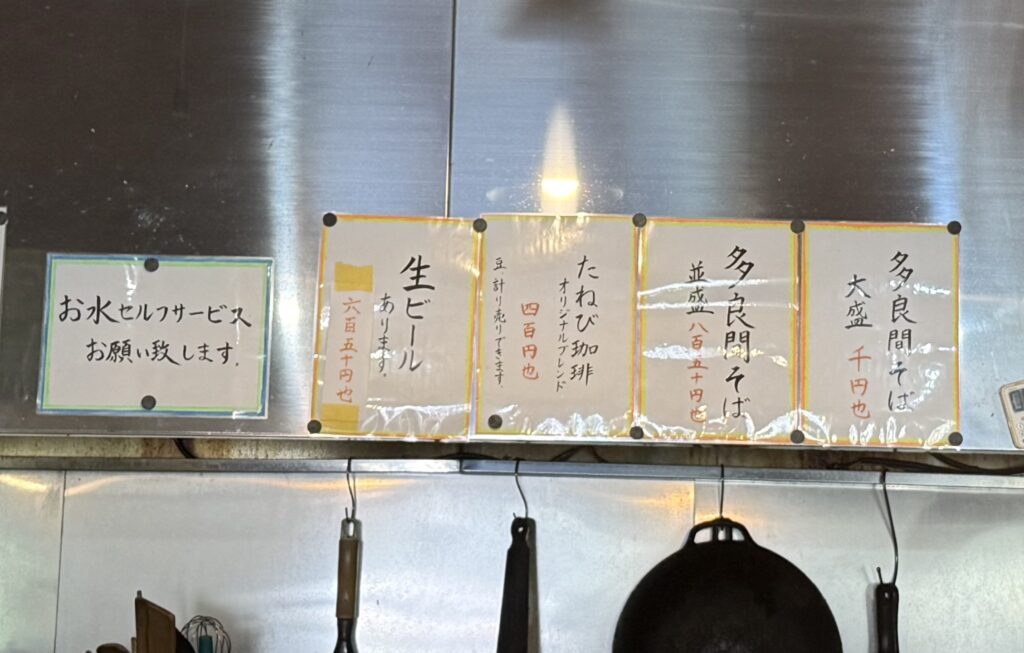 多良間そば
大盛 千円也
多良間そば
並盛 八百五十円也
たねび珈琲
オリジナルブレンド
四百円也
豆 計り売りできます。
生ビール
あります。
六百五十円也
お水セルフサービス
お願い致します。